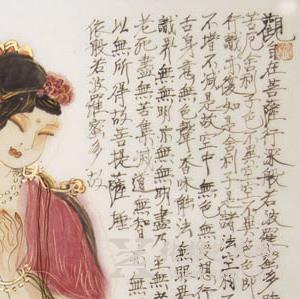 觀自在菩薩行深般若波羅蜜多時
苦厄舍利子色不異空空不異色色即
行識亦復如是舍利子是諸法空相
不增不減是故空中無色無受想行
舌身意無色聲香味觸法無眼界
識界無無明亦無無明盡乃至無
老死盡無苦集滅道無智
以無所得故菩提薩埵
依般若波羅蜜多故